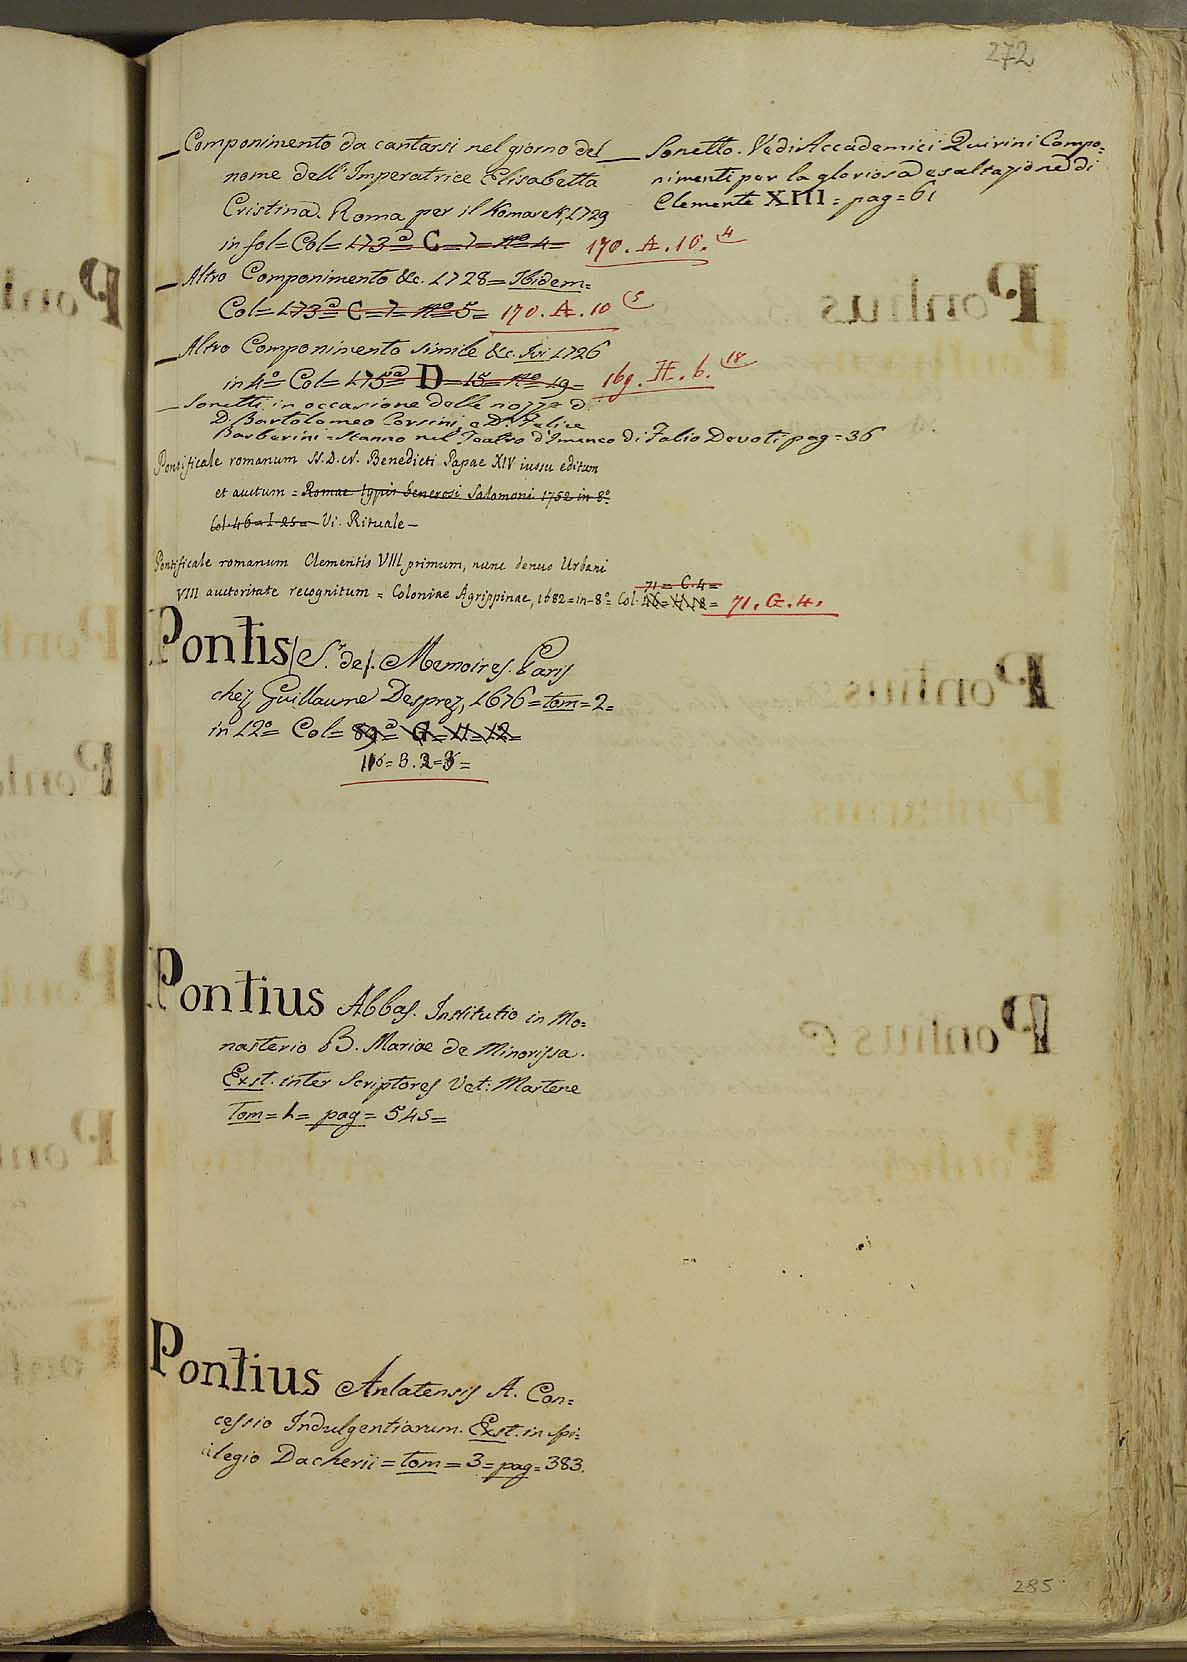 272
_ Componimento da cantarsi nel giorno del
nome dell'Imperatrice Elisabetta
Cristina. Roma per il Komarek, 1729
in fol = Col = 173ª C = 7 = Nº 4 = 170. A. 10. 4
_ Altro Componimento &c. 1728 = Ibidem =
Col = 173ª C = 7 = Nº 5 = 170. A. 10 5
_ Altro Componimento simile &c. Ivi 1726
in 4º Col = 175ª D = 15 = Nº 19 = 169. H. 6. 18
_ Sonetti in occasione delle nozze di
D. Bartolomeo Corsini, e Dª Felice
Barberini = Stanno nel Teatro d'Imeneo di Falio Devoti pag = 36
Pontificale romanum SS. D. N. Benedicti Papae XIV iussu editum
et auctum = Romae typis Generosi Salomoni 1752 in 8º
Col. 46 = I. 25 = Vi. Rituale _
Pontificale romanum Clementis VIII primum, nunc denuo Urbani
71 = C. 4 =
VIII auctoritate recognitum = Coloniae Agrippinae, 1682 = in = 8º = Col. = 71. G. 4.
Pontis (Sr. de). Memoires. Paris
chez Guillaume Desprez, 1676 = tom = 2 =
in 12º = Col = 89ª = G = 11 = 12 =
116 = B. 2 = 3 =
Pontius Abbas. Institutio in Mo=
nasterio B. Mariae de Minorissa.
Exst. inter Scriptores Vet: Martene
Tom = 1 = pag = 545 =
Pontius Arelatensis A. Con=
cessio Indulgentiarum. Exst. in Spi=
cilegio Dacherii = tom = 3 = pag = 383.
_ Sonetto. Vedi Accademici Quirini Compo=
nimenti per la gloriosa esaltazione di
Clemente XIII = pag = 61
285